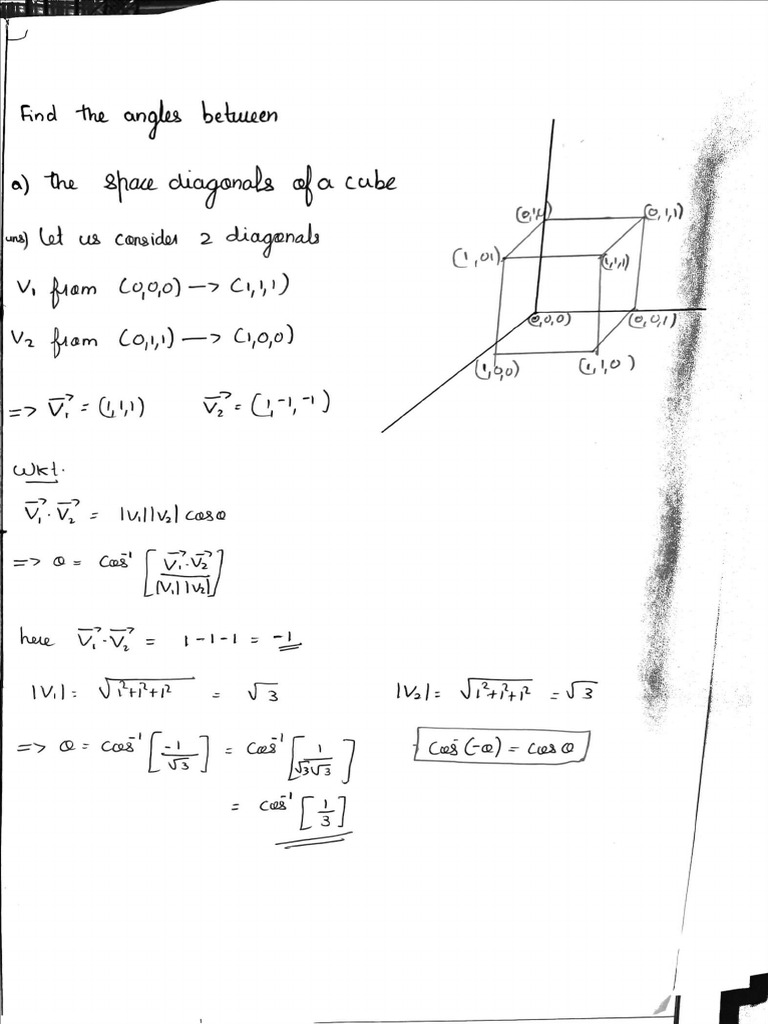 Find the angles between
a) the space diagonals of a cube
ans) Let us consider 2 diagonals
V₁ from (0,0,0) —> (1,1,1)
V₂ from (0,1,1) —> (1,0,0)
=> V₁⃗ = (1,1,1) V₂⃗ = (1,-1,-1)
(0,1,1)
(1,01)
(1,1,1)
(0,0,0)
(0,0,1)
(1,0,0)
(1,1,0)
Wkt.
V₁⃗ . V₂⃗ = |V₁||V₂| cosθ
=> θ = cos⁻¹ [V₁⃗.V₂⃗ / |V₁||V₂|]
here V₁⃗.V₂⃗ = 1-1-1 = -1
|V₁| = √1²+1²+1² = √3 |V₂| = √1²+1²+1² = √3
=> θ = cos⁻¹ [-1/√3] = cos⁻¹ [1/√3√3] cos⁻(-θ) = cosθ
= cos⁻¹ [1/3]